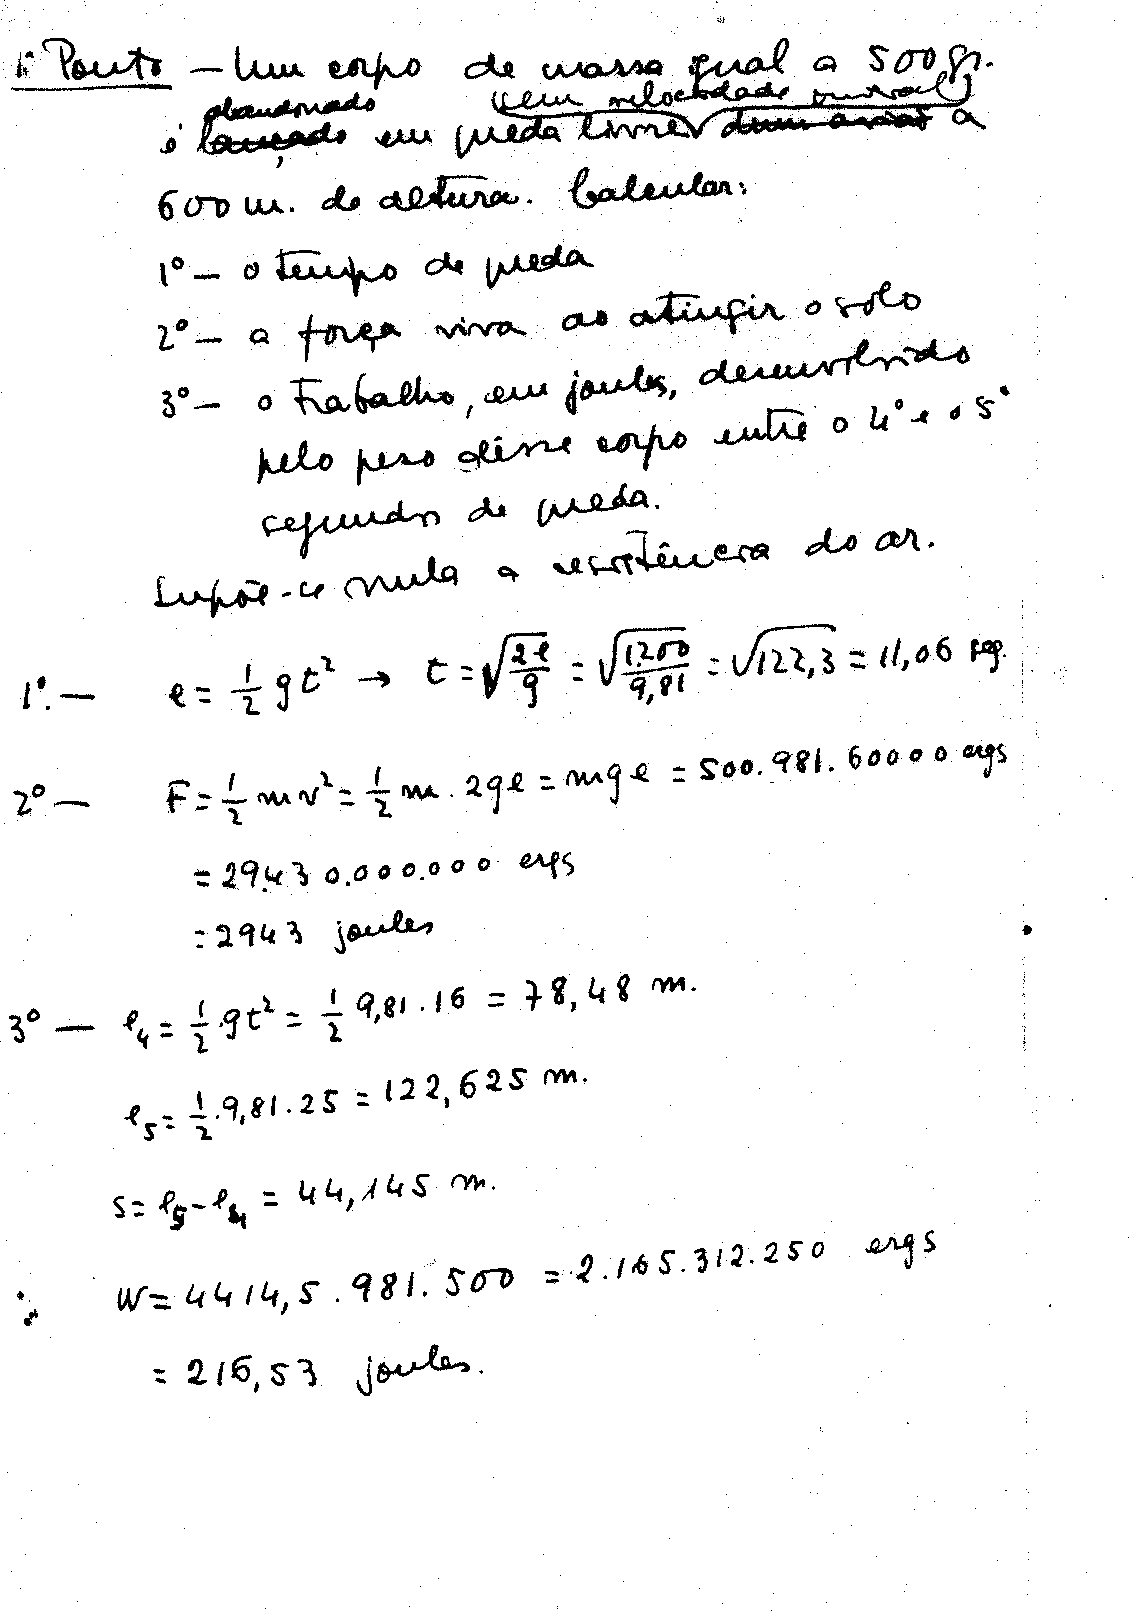 1º Ponto – Um corpo de massa igual a 500 gr.
abandonado (sem velocidade inicial)
é lançado em queda livre dum avião a
600 m. de altura. Calcular:
1º – o tempo de queda
2º – a força viva ao atingir o solo
3º – o trabalho, em joules, desenvolvido
pelo peso dêsse corpo entre o 4º e o 5º
segundos de queda.
Supõe-se nula a resistência do ar.
1º. – e = 1/2 g t² → t = √(2e/g) = √(1200/9,81) = √122,3 = 11,06 seg.
2º – F = 1/2 m v² = 1/2 m . 2ge = mge = 500.981.60000 ergs
= 29.430.000.000 ergs
= 2943 joules
3º – e₄ = 1/2 . gt² = 1/2 9,81 . 16 = 78,48 m.
e₅ = 1/2 . 9,81 . 25 = 122,625 m.
s = e₅ - e₄ = 44,145 m.
W = 4414,5 . 981 . 500 = 2.165.312.250 ergs
= 216,53 joules.